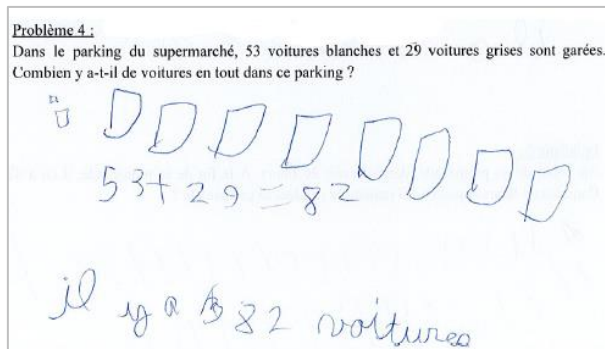 Problème 4 :
Dans le parking du supermarché, 53 voitures blanches et 29 voitures grises sont garées.
Combien y a-t-il de voitures en tout dans ce parking ?
53+29=82
il y a 82 voitures